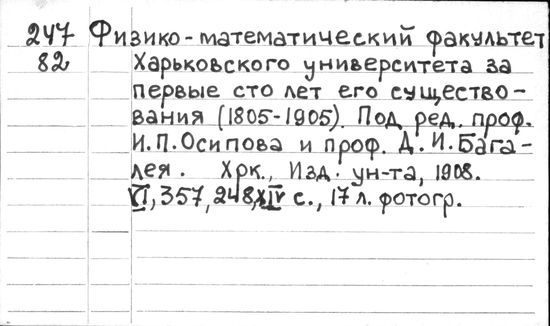 247 Физико-математический факультет
82 Харьковского университета за
первые сто лет его существо-
вания (1805-1905). Под ред. проф.
И.П.Осипова и проф. Д.И.Бага-
лея. Хрк., Изд. ун-та, 1908.
VI, 357, 248, XIV с., 17 л. фотогр.